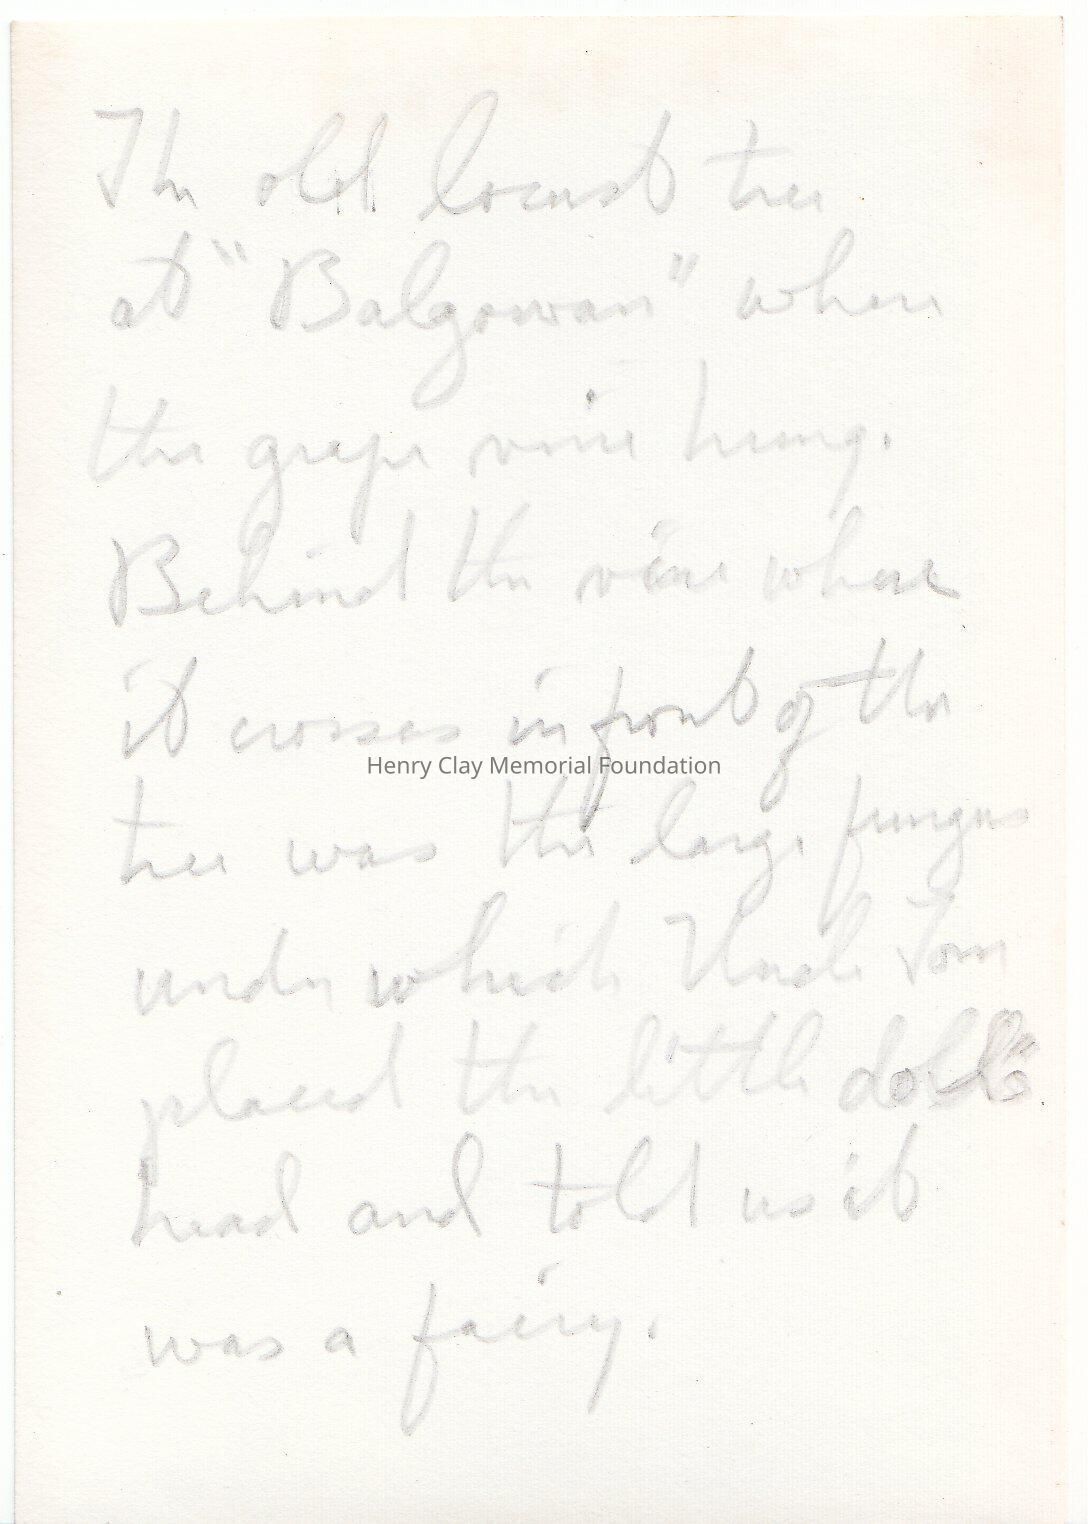 The old locust tree
at "Balgowan" where
the grape vine hung.
Behind the vine where
it crosses in front of the
Henry Clay Memorial Foundation
tree was the large fungus
under which Uncle Tom
placed the little doll's
head and told us it
was a fairy.